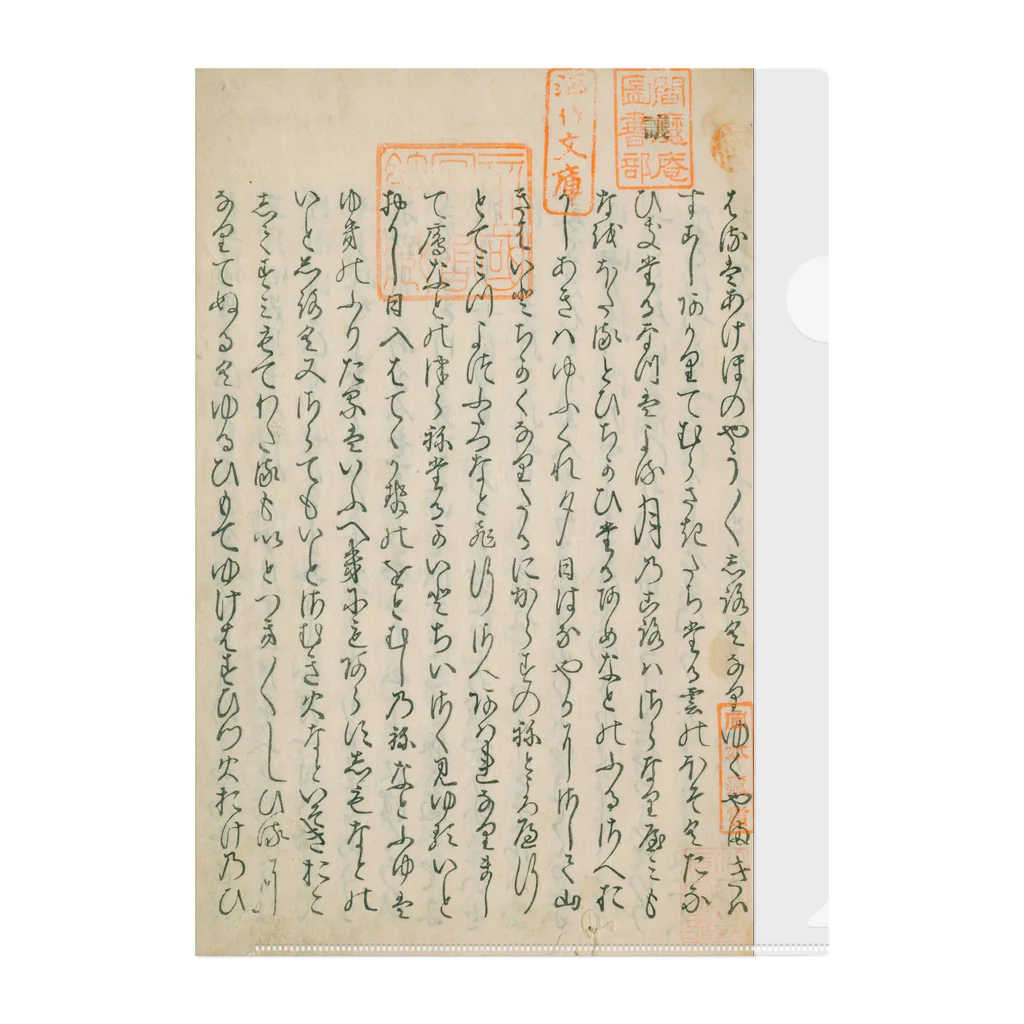 閻魔庵
圖書部
洒竹文庫
はるはあけほのやう〳〵しろくなりゆくやまきハ
すこしあかりてむらさきたちたる雲のほそくたな
ひきたるなつはよる月のころハさらなりやみも
なをほたるとひちかひたるあめなとのふるさへお
かしあきハゆふくれ夕日はなやかにさして山
きはいとちかくなりたるにからすのねところへ行
とてみつよつふたつなと飛行さへあハれなりまし
て鴈なとのつらねたるかいとちいさく見ゆるいと
おかし日入はてゝかせのをとむしのねなとふゆは
ゆきのふりたるはいふへきにもあらすしもなとの
いとしろく又さらてもいとさむき火なといそきおこ
しすみもてわたるもいとつき〳〵しひるに
なりてぬるくゆるひもてゆけはすひつ火おけのひ